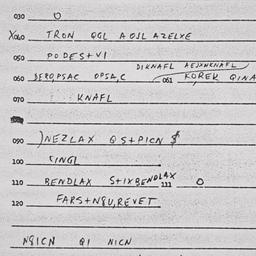 030 O
X040 TRON QGL AOJL AZELXE
050 PODES+VI
DIKNAFL
060 OPSA,C 061 KOREK QINA
070 KNAFL
090 )NEZLAX QS+PICN $
100 CINGL
110 BENDLAX S+IXBENDLAX 111 O
120 FARS+N8U,REVET
N8ICN QI NICN